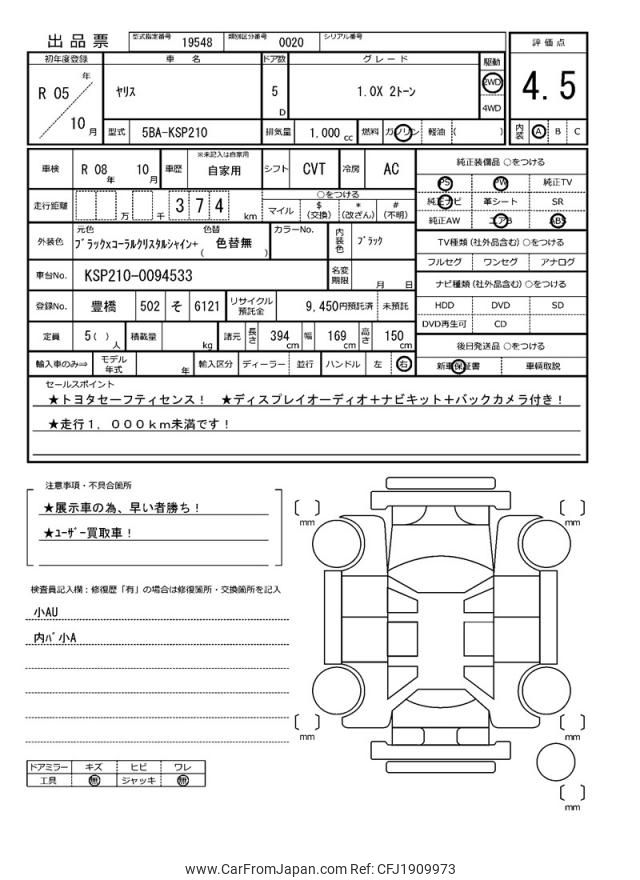 出品票
型式指定番号 19548 類別区分番号 0020 シリアル番号
初年度登録 車 名 ドア数 グレード 駆動 評価点
R 05 年 10 月 ヤリス 5 D 1.0X 2トーン 2WD 4WD 4.5
型式 5BA-KSP210 排気量 1,000 cc 燃料 ガソリン 軽油 ( ) 内装 A B C
車検 R 08 年 10 月 車歴 ※未記入は自家用 自家用 シフト CVT 冷房 AC
純正装備品 ○をつける
PS PW 純正TV
純正ナビ 革シート SR
純正AW エアB ABS
走行距離 万 千 3 7 4 km ○をつける
マイル $ (交換) * (改ざん) # (不明)
外装色 元色 ブラックxコーラルクリスタルシャイン+ 色替 ( 色替無 ) カラーNo. 内装色 ブラック
TV種類 (社外品含む) ○をつける
フルセグ ワンセグ アナログ
車台No. KSP210-0094533 名変期限 月 日
ナビ種類 (社外品含む) ○をつける
HDD DVD SD
DVD再生可 CD
登録No. 豊橋 502 そ 6121 リサイクル預託金 9,450円預託済 未預託
定員 5 ( ) 人 積載量 kg 諸元 長さ 394 cm 幅 169 cm 高さ 150 cm
後日発送品 ○をつける
新車保証書 車輌取説
輸入車のみ⇨ モデル年式 年 輸入区分 ディーラー 並行 ハンドル 左 右
セールスポイント
★トヨタセーフティセンス! ★ディスプレイオーディオ+ナビキット+バックカメラ付き!
★走行1,000km未満です!
注意事項・不具合箇所
★展示車の為、早い者勝ち!
★ユーザー買取車!
検査員記入欄:修復歴「有」の場合は修復箇所・交換箇所を記入
小AU
内バ小A
ドアミラー キズ ヒビ ワレ
工具 無 ジャッキ 無
mm
mm
mm
mm
mm
www.CarFromJapan.com Ref: CFJ1909973